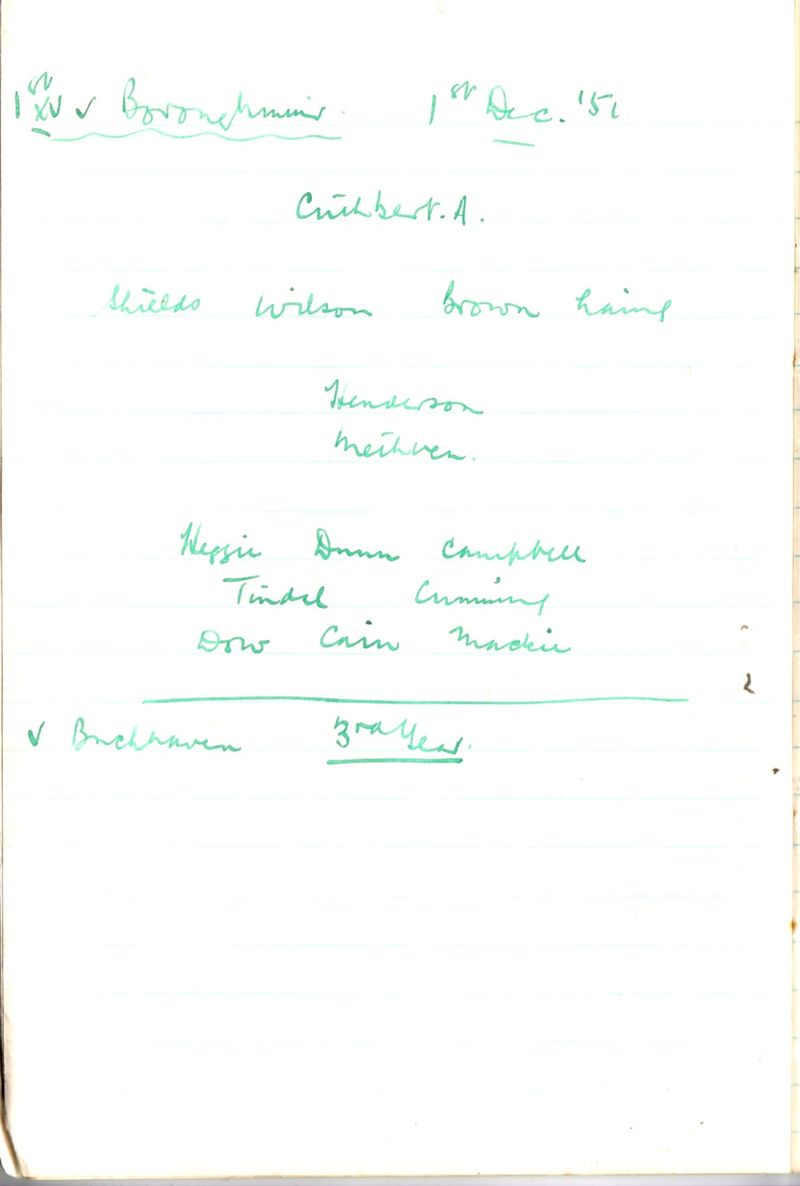 1st XV v Boroughmuir. 1st Dec. '51
Cuthbert. A.
Shields Wilson Brown Laing
Henderson
Methven.
Heggie Dunn Campbell
Tindal Cumming
Dow Cain Mackie
v Buckhaven 3rd Year.